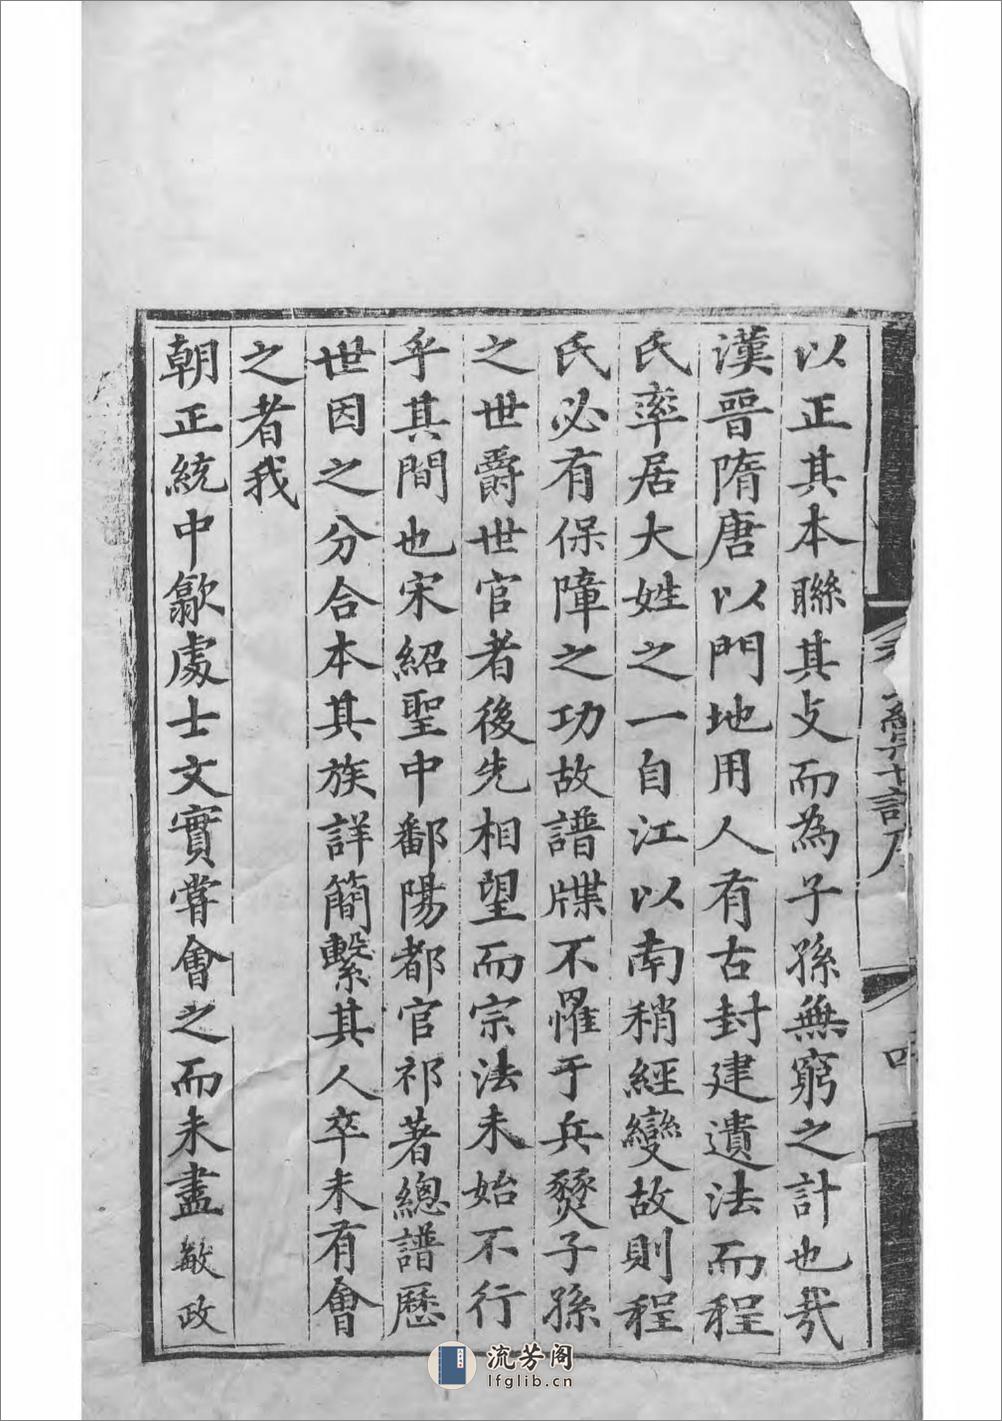 以正其本聯其攴而為子孫無窮之計也㢤
漢晉隋唐以門地用人有古封建遺法而程
氏率居大姓之一自江以南稍經變故則程
氏必有保障之功故譜牒不罹于兵燹子孫
之世爵世官者後先相望而宗法未始不行
乎其間也宋紹聖中鄱陽都官祁著總譜歷
世因之分合本其族詳簡繫其人卒未有會
之者我
朝正統中歙處士文實嘗會之而未盡敏政
流芳阁
lfglib.cn